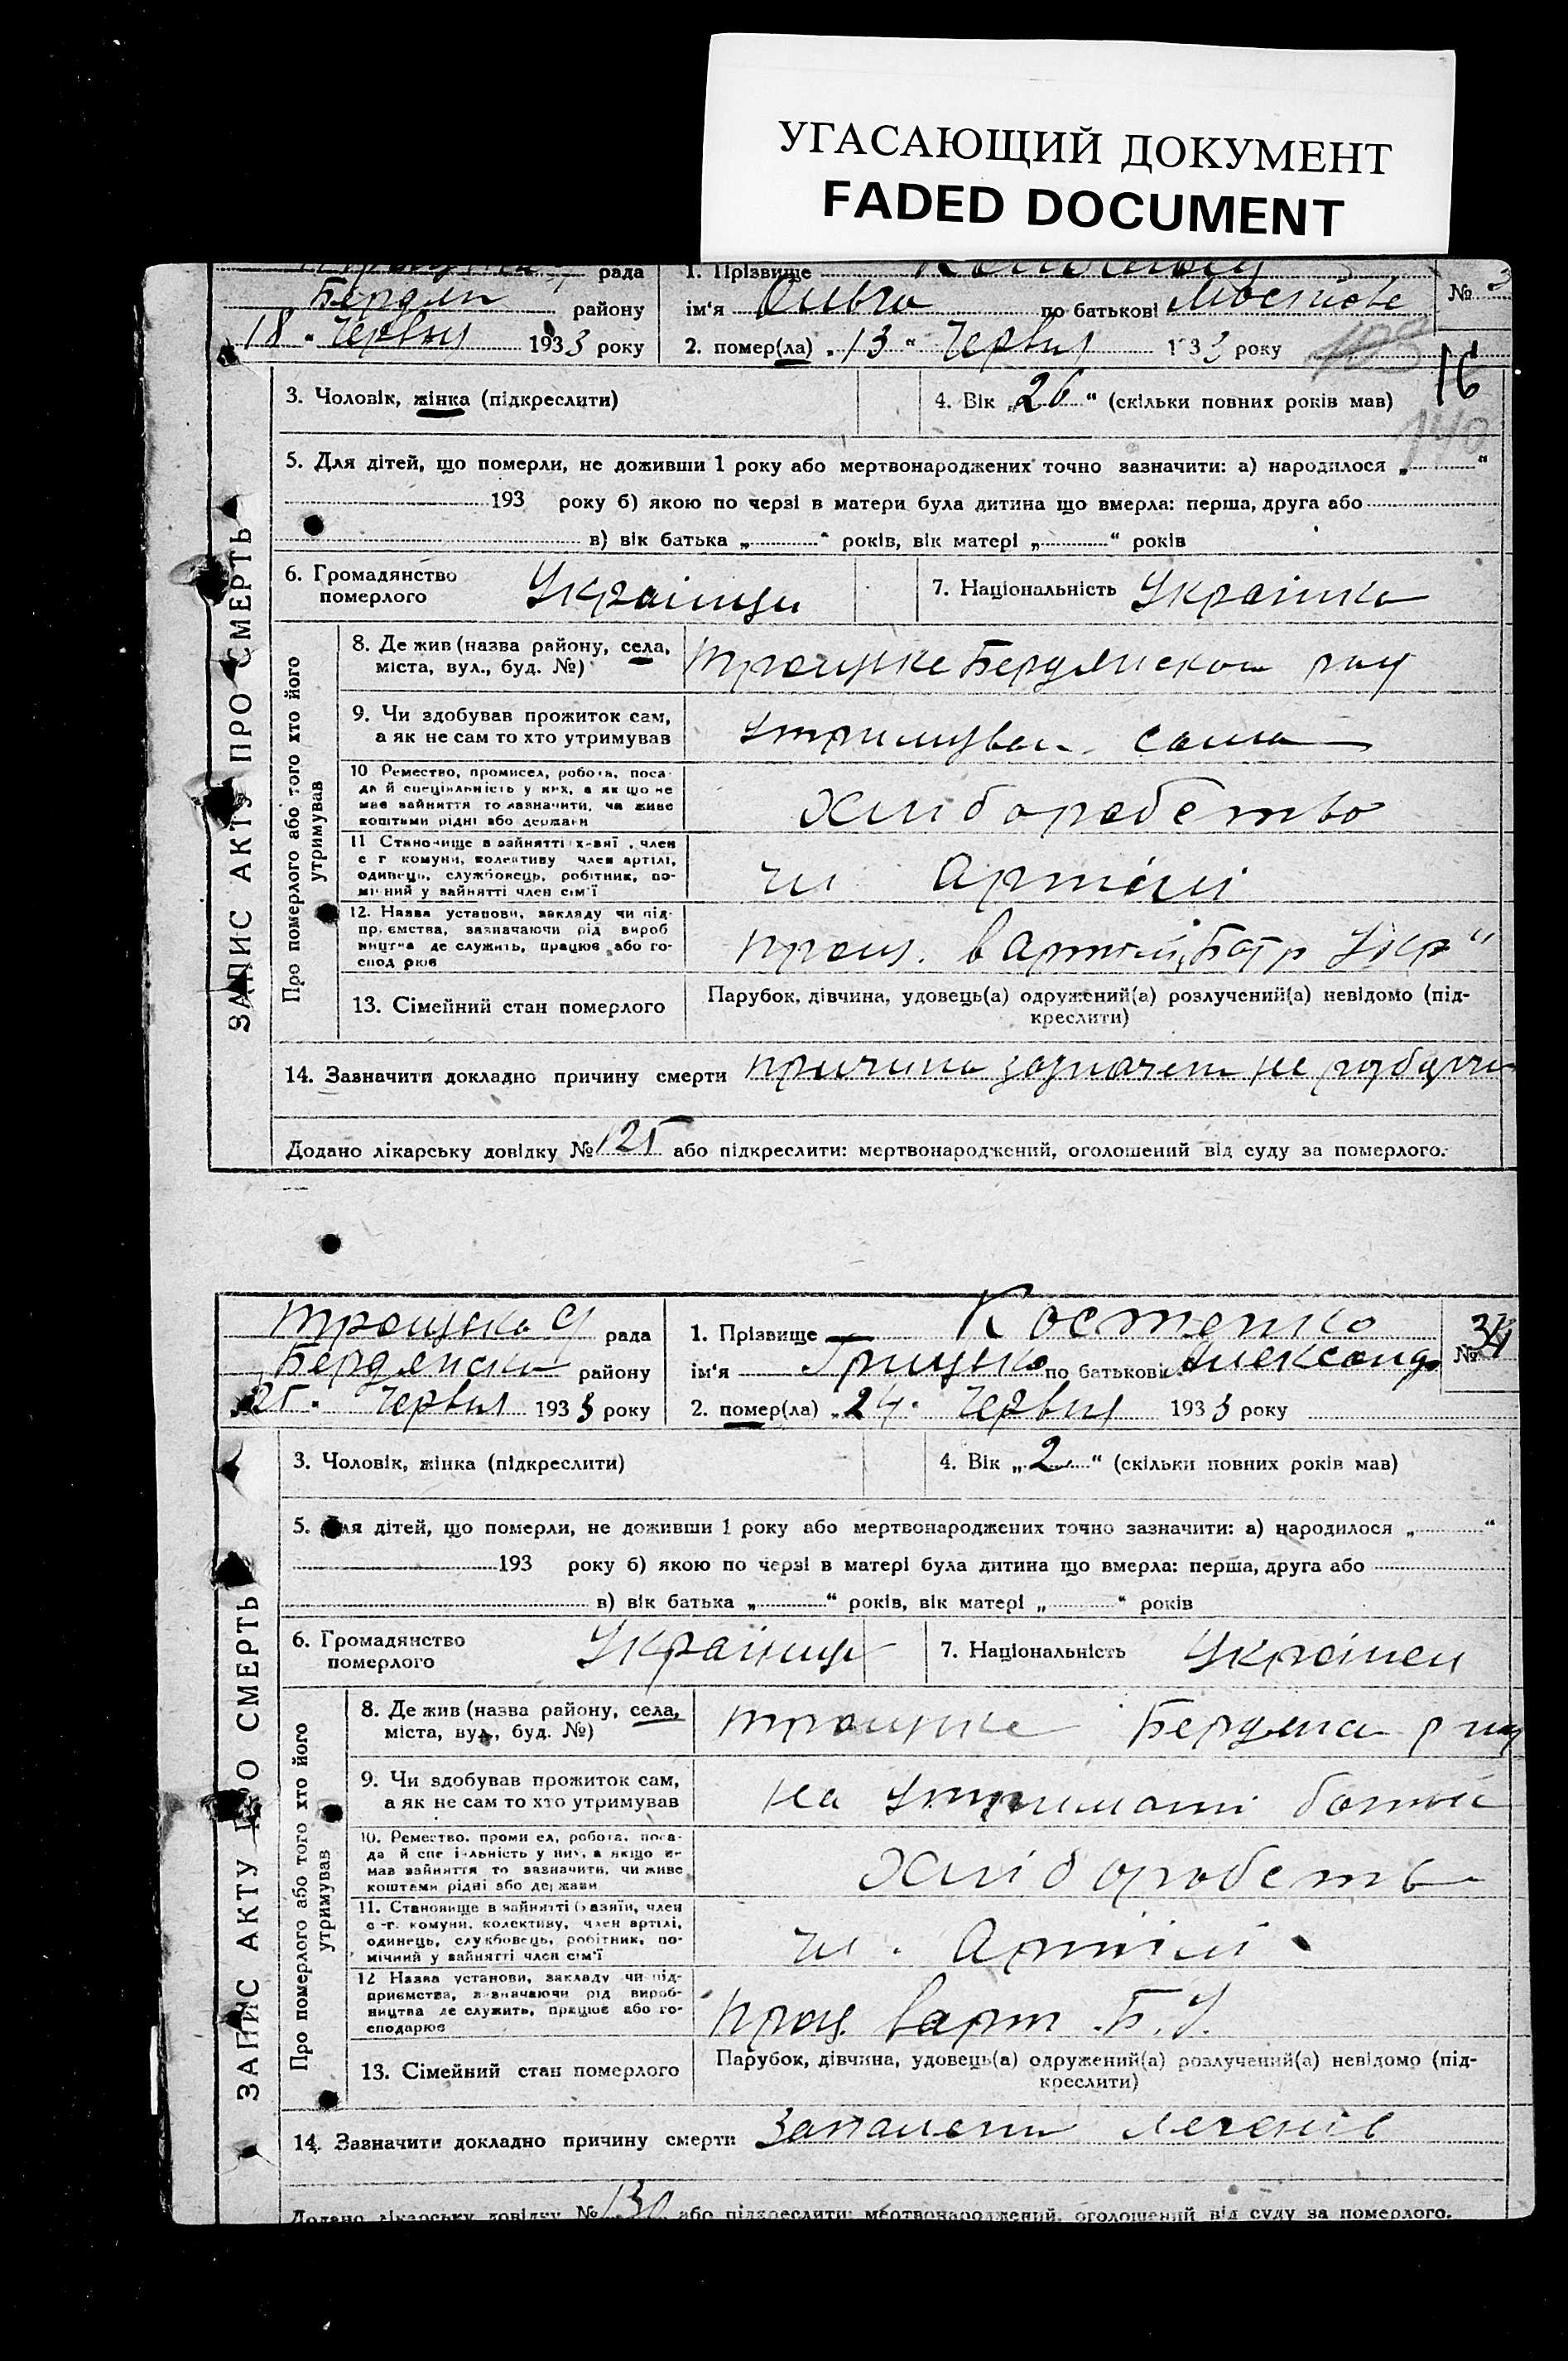 УГАСАЮЩИЙ ДОКУМЕНТ
FADED DOCUMENT
рада
1. Прізвище
№ 3
Бердян району
ім'я по батькові
18 " Червня 1933 року
2. помер(ла) „ 13 " Червня 1933 року
103
16
140
3. Чоловік, жінка (підкреслити)
4. Вік „ 26 " (скільки повних років мав)
5. Для дітей, що померли, не доживши 1 року або мертвонароджених точно зазначити: а) народилося „ "
193 року б) якою по черзі в матери була дитина що вмерла: перша, друга або
в) вік батька „ " років, вік матері „ " років
6. Громадянство
померлого
Українци
7. Національність Українка
ЗАПИС АКТУ ПРО СМЕРТЬ
Про померлого або того хто його
утримував
8. Де жив (назва району, села,
міста, вул., буд. №)
Троицке Бердянскои
9. Чи здобував прожиток сам,
а як не сам то хто утримував
сама
10 Ремество, промисел, робота, поса-
да й спеціяльність у них, а як що не
має зайняття то зазначити, чи живе
коштами рідні або держави
Хліборобство
11 Становище в зайнятті х-вні , член
с г комуни, колективу член артілі,
одинець, службовець, робітник, по-
мічний у зайнятті член сім'ї
чл Артілі
12. Назва установи, закладу чи під-
приємства, зазначаючи рід вироб
ництва де служить, працює або го-
спод рює
прац. в Артілі Укр "
13. Сімейний стан померлого
Парубок, дівчина, удовець(а) одружений(а) розлучений(а) невідомо (під-
креслити)
14. Зазначити докладно причину смерти причина не
Додано лікарську довідку № 125 або підкреслити: мертвонароджений, оголошений від суду за померлого.
рада
1. Прізвище Костенко
№ 34
Бердянски району
ім'я Грицько по батькові Александр
25 " Червня 1933 року
2. помер(ла) „ 24 " Червня 1933 року
3. Чоловік, жінка (підкреслити)
4. Вік „ 2 " (скільки повних років мав)
5. Для дітей, що померли, не доживши 1 року або мертвонароджених точно зазначити: а) народилося „ "
193 року б) якою по черзі в матері була дитина що вмерла: перша, друга або
в) вік батька „ " років, вік матері „ " років
6. Громадянство
померлого
Українци
7. Національність Українец
ЗАПИС АКТУ ПРО СМЕРТЬ
Про померлого або того хто його
утримував
8. Де жив (назва району, села,
міста, вул., буд. №)
Троицке
9. Чи здобував прожиток сам,
а як не сам то хто утримував
на утриманні
10. Ремество, проми ел, робота, поса-
да й спе іяльність у них, а якщо н-
мав зайняття то зазначити, чи живе
коштами рідні або держави
Хліборобств
11. Становище в зайнятті (хазяїн, член
с-г. комуни, колективу, член артілі,
одинець, службовець, робітник, по-
мічний у зайнятті член сім'ї
чл. Артілі
12 Назва установи, закладу чи під-
приємства, зазначаючи рід вироб-
ництва де служить, працює або го-
сподарює
прац. в арт Б. У.
13. Сімейний стан померлого
Парубок, дівчина, удовець(а) одружений(а) розлучений(а) невідомо (під-
креслити)
14. Зазначити докладно причину смерти Запалення легенів
Додано лікарську довідку № 130 або підкреслити: мертвонароджений, оголошений від суду за померлого.